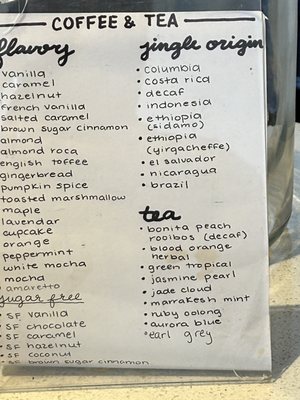 COFFEE & TEA
flavory
vanilla
caramel
hazelnut
french vanilla
salted caramel
brown sugar cinnamon
almond
almond roca
english toffee
gingerbread
pumpkin spice
toasted marshmallow
maple
lavendar
cupcake
orange
peppermint
white mocha
mocha
amaretto
sugar free
• SF vanilla
• SF chocolate
• SF caramel
• SF hazelnut
• SF coconut
• SF brown sugar cinnamon
single origin
• columbia
• costa rica
• decaf
• indonesia
• ethiopia
(sidamo)
• ethiopia
(yirgacheffe)
• el salvador
• nicaragua
• brazil
tea
• bonita peach
rooibos (decaf)
• blood orange
herbal
• green tropical
• jasmine pearl
• jade cloud
• marrakesh mint
• ruby oolong
• aurora blue
•earl grey